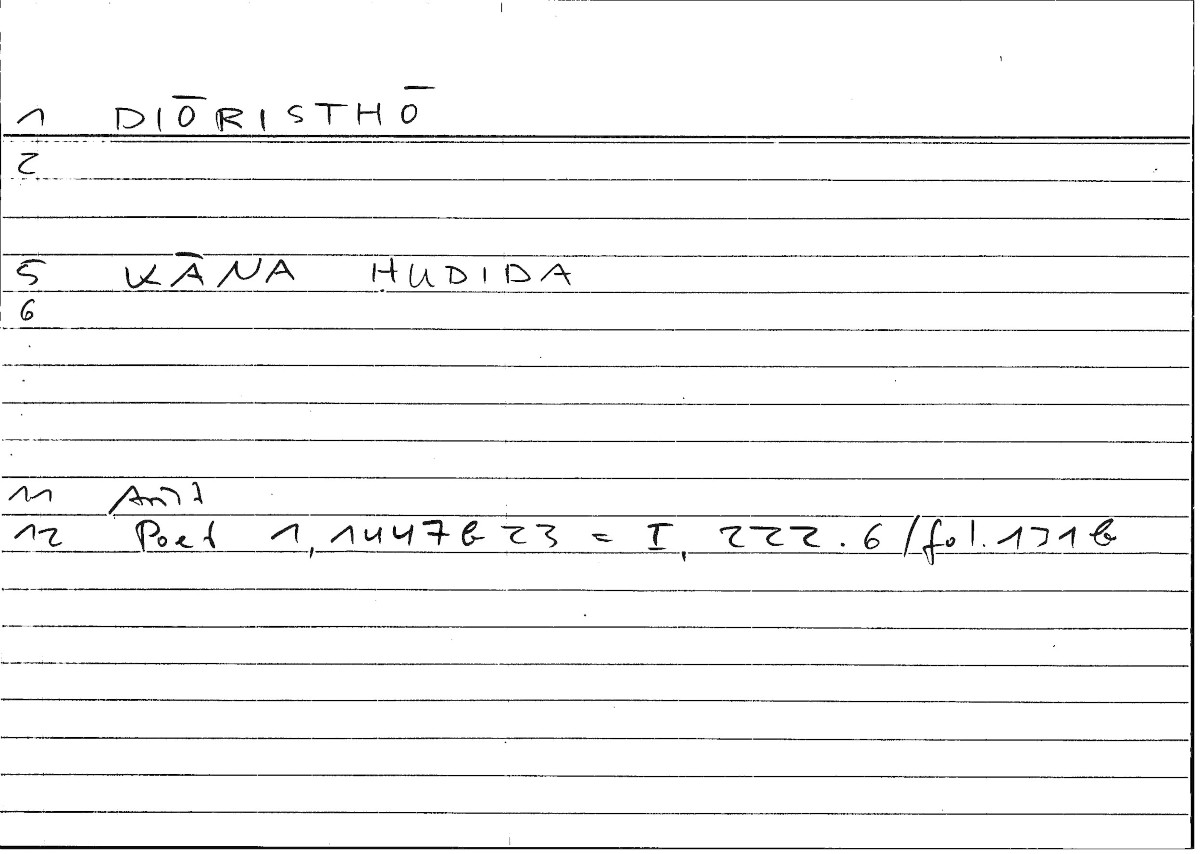 1 DIŌRISTHŌ
2
5 KĀNA HUDIDA
6
11 Arist
12 Poet 1,1447b23 = I, 222.6/fol.131b